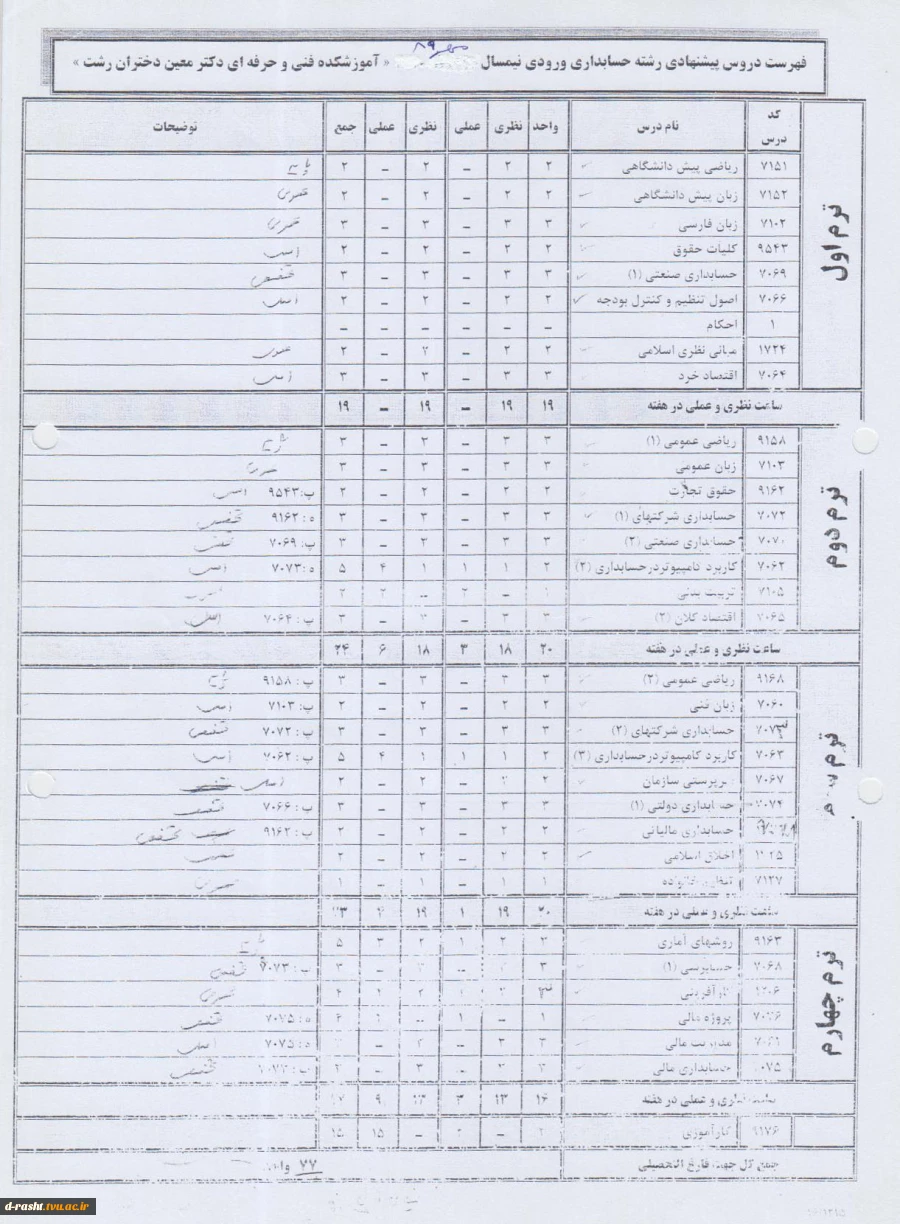 فهرست دروس پیشنهادی رشته حسابداری ورودی نیمسال مهر ۸۹ « آموزشکده فنی و حرفه ای دکتر معین دختران رشت »
کد درس نام درس واحد نظری عملی نظری عملی جمع توضیحات
ترم اول
۷۱۵۱ ریاضی پیش دانشگاهی ۲ ۲ – ۲ – ۲ پایه
۷۱۵۲ زبان پیش دانشگاهی ۲ ۲ – ۲ – ۲ عمومی
۷۱۰۲ زبان فارسی ۳ ۳ – ۳ – ۳ عمومی
۹۵۴۳ کلیات حقوق ۲ ۲ – ۲ – ۲ اصلی
۷۰۶۹ حسابداری صنعتی (۱) ۳ ۳ – ۳ – ۳ تخصصی
۷۰۶۶ اصول تنظیم و کنترل بودجه ۲ ۲ – ۲ – ۲ اصلی
۱ احکام – – – – – –
۱۷۲۴ مبانی نظری اسلامی ۲ ۲ – ۲ – ۲ عمومی
۷۰۶۴ اقتصاد خرد ۳ ۳ – ۳ – ۳ اصلی
ساعت نظری و عملی در هفته ۱۹ ۱۹ – ۱۹ – ۱۹
ترم دوم
۹۱۵۸ ریاضی عمومی (۱) ۳ ۳ – ۳ – ۳ پایه
۷۱۰۳ زبان عمومی ۳ ۳ – ۳ – ۳ عمومی
۹۱۶۲ حقوق تجارت ۲ ۲ – ۲ – ۲ پ: ۹۵۴۳ اصلی
۷۰۷۲ حسابداری شرکتهای (۱) ۳ ۳ – ۳ – ۳ ه: ۹۱۶۲ تخصصی
۷۰۷۰ حسابداری صنعتی (۲) ۳ ۳ – ۳ – ۳ پ: ۷۰۶۹ تخصصی
۷۰۶۲ کاربرد کامپیوتر در حسابداری (۲) ۲ ۱ ۱ ۱ ۴ ۵ ه: ۷۰۷۳ اصلی
۷۱۰۵ تربیت بدنی ۱ – ۲ – ۲ ۲
۷۰۶۵ اقتصاد کلان (۲) ۳ ۳ – ۳ – ۳ پ: ۷۰۶۴ اصلی
ساعت نظری و عملی در هفته ۲۰ ۱۸ ۳ ۱۸ ۶ ۲۴
ترم سوم
۹۱۶۸ ریاضی عمومی (۲) ۳ ۳ – ۳ – ۳ پ: ۹۱۵۸ پایه
۷۰۶۰ زبان فنی ۲ ۲ – ۲ – ۲ پ: ۷۱۰۳ اصلی
۷۰۷۳ حسابداری شرکتهای (۲) ۳ ۳ – ۳ – ۳ پ: ۷۰۷۲ تخصصی
۷۰۶۳ کاربرد کامپیوتر در حسابداری (۳) ۲ ۱ ۱ ۱ ۴ ۵ پ: ۷۰۶۲ اصلی
۷۰۶۷ سرپرستی سازمان ۲ ۲ – ۲ – ۲ اصلی
۷۰۷۴ حسابداری دولتی (۱) ۳ ۳ – ۳ – ۳ پ: ۷۰۶۶ تخصصی
حسابداری مالیاتی ۲ ۲ – ۲ – ۲ پ: ۹۱۶۲ تخصصی
اخلاق اسلامی ۲ ۲ – ۲ – ۲
۷۱۲۷ تنظیم خانواده ۱ ۱ – ۱ – ۱ عمومی
ساعت نظری و عملی در هفته ۲۰ ۱۹ ۱ ۱۹ ۴ ۲۳
ترم چهارم
۹۱۶۳ روشهای آماری ۳ ۲ ۱ ۲ ۳ ۵ پایه
۷۰۶۸ حسابرسی (۱) ۳ – – ۳ پ: ۷۰۷۳ تخصصی
کارآفرینی
پروژه مالی ۱ – ۱ ه: ۷۰۷۵ تخصصی
مدیریت مالی ۳ ۳ – ه: ۷۰۷۵ اصلی
حسابداری مالی تخصصی
ساعت نظری و عملی در هفته ۱۶ ۱۳ ۳ ۱۳ ۹
۹۱۷۶ کارآموزی – – ۱۵ ۱۵
جمع کل جهت فارغ التحصیلی ۷۷ واحد
d-rasht.tvu.ac.ir